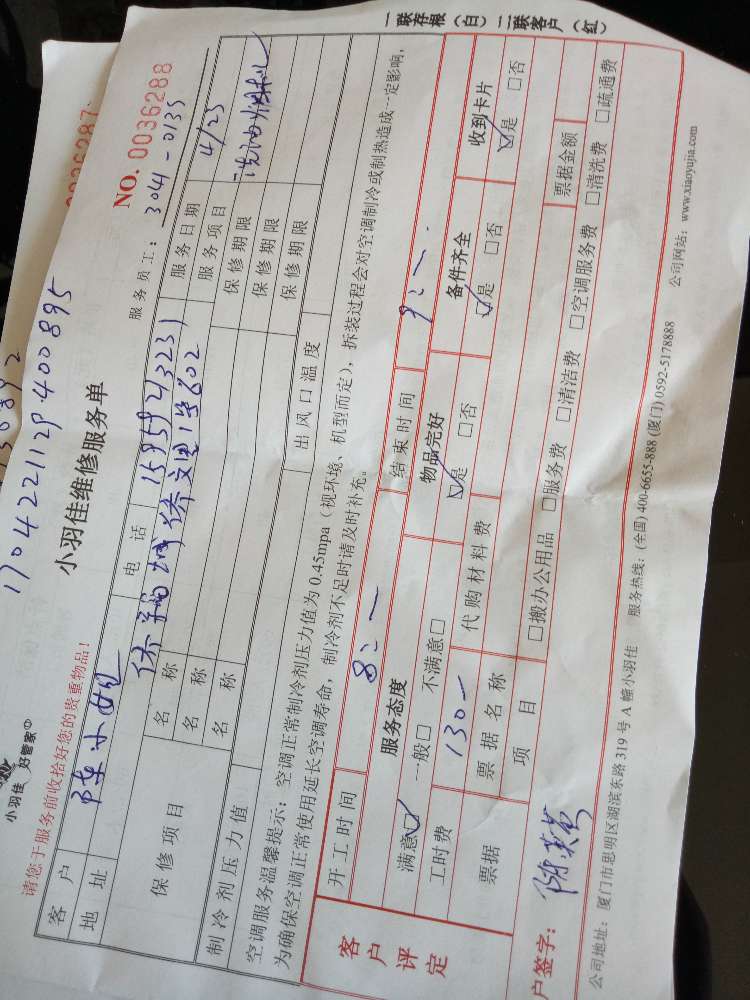 小羽佳 好管家
1704221129400895
NO. 0036288
小羽佳维修服务单
请您于服务前收拾好您的贵重物品！
服务员工：3041-0135
客户 陈小姐 电话 15959213231 服务日期 4/23
地址 侨文里1号602 服务项目 洗油烟机
保修项目 名称 保修期限
名称 保修期限
名称 保修期限
制冷剂压力值 出风口温度
空调服务温馨提示：空调正常制冷剂压力值为 0.45mpa（视环境、机型而定），拆装过程会对空调制冷或制热造成一定影响，
为确保空调正常使用延长空调寿命，制冷剂不足时请及时补充。
开工时间 8：一 结束时间 9：一
客户评定
服务态度 物品完好 备件齐全 收到卡片
满意☑ 一般□ 不满意□ ☑是 □否 ☑是 □否 ☑是 □否
工时费 130- 代购材料费
票据 票据名称 票据金额
项目 □搬办公用品 □服务费 □清洁费 □空调服务费 □清洗费 □疏通费
户签字：
公司地址：厦门市思明区湖滨东路 319 号 A 幢小羽佳 服务热线：(全国) 400-6655-888 (厦门) 0592-5178888 公司网站：www.xiaoyujia.com
一联存根（白）二联客户（红）
0036287